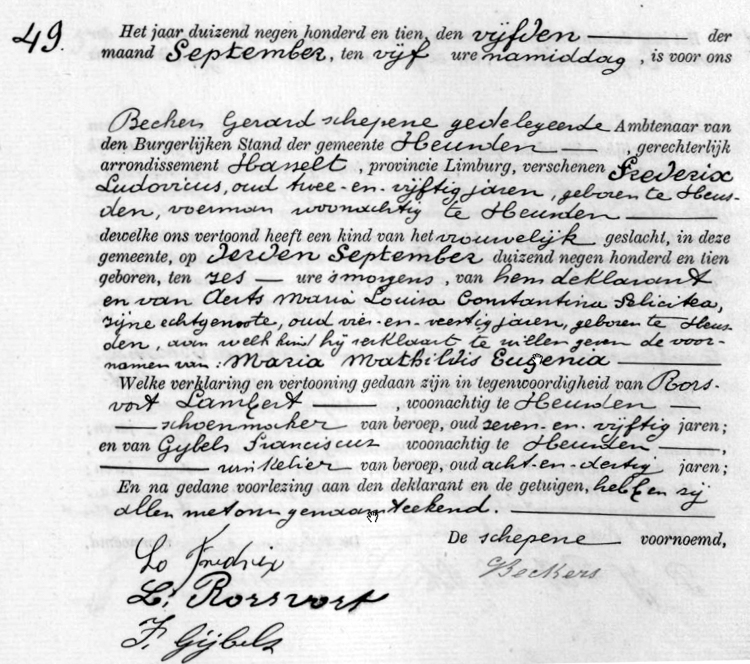 49. Het jaar duizend negen honderd en tien, den vijfden der
maand September, ten vijf ure namiddag, is voor ons
Beckers Gerard schepene gedelegeerde Ambtenaar van
den Burgerlijken Stand der gemeente Heusden, gerechterlijk
arrondissement Hasselt, provincie Limburg, verschenen Frederix
Ludovicus, oud twee-en-vijftig jaren, geboren te Heus-
den, voerman woonachtig te Heusden
dewelke ons vertoond heeft een kind van het vrouwelijk geslacht, in deze
gemeente, op derden September duizend negen honderd en tien
geboren, ten zes ure smorgens, van hem deklarant
en van Aerts Maria Louisa Constantina Felicitea,
zijne echtgenoote, oud vier-en-veertig jaren, geboren te Heus-
den, aan welk kind hij verklaart te willen geven de voor-
namen van: Maria Mathildis Eugenia
Welke verklaring en vertooning gedaan zijn in tegenwoordigheid van Rors-
vort Lambert, woonachtig te Heusden
schoenmaker van beroep, oud zeven-en-vijftig jaren;
en van Gybels Franciscus woonachtig te Heusden,
winkelier van beroep, oud acht-en-dertig jaren;
En na gedane voorlezing aan den deklarant en de getuigen, hebben zij
allen met ons genaamteekend.
De schepene voornoemd,
Lo Fredrix
Beckers
L. Rorsvort
F. Gijbels